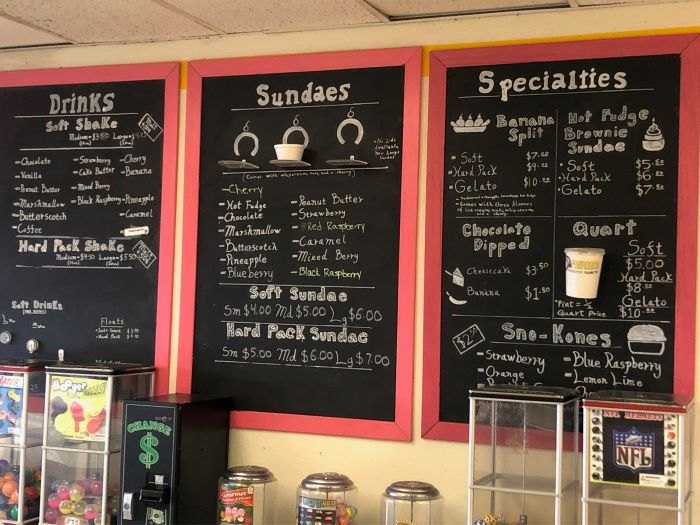 Drinks
Soft Shake
- Chocolate
- Vanilla
- Peanut Butter
- Marshmallow
- Butterscotch
- Coffee
- Strawberry
- Cake Batter
- Mixed Berry
- Black Raspberry
- Cherry
- Banana
- Pineapple
- Caramel
Hard Pack Shake
Medium=$4.50 Large=$5.50
Soft Drinks
Floats
Sundaes
(Comes with whipcream, nuts, and a cherry)
- Cherry
- Hot Fudge
- Chocolate
- Marshmallow
- Butterscotch
- Pineapple
- Blueberry
- Peanut Butter
- Strawberry
- Red Raspberry
- Caramel
- Mixed Berry
- Black Raspberry
Soft Sundae
Sm $4.00 Md $5.00 Lg $6.00
Hard Pack Sundae
Sm $5.00 Md $6.00 Lg $7.00
Specialties
Banana
Split
- Soft
- Hard Pack
- Gelato
Hot Fudge
Brownie
Sundae
- Soft
- Hard Pack
- Gelato
Chocolate
Dipped
Cheesecake $3.50
Banana $1.50
Quart
Soft
$5.00
Hard Pack
Gelato
*Pint = ½
Quart Price
Sno-Kones
- Strawberry
- Orange
- Blue Raspberry
- Lemon Lime
CHANGE
$
Gourmet
NFL